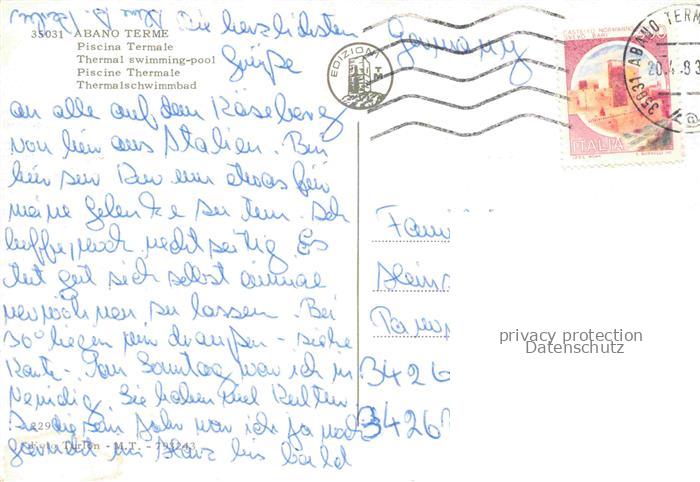 35031 ABANO TERME
Piscina Termale
Thermal swimming-pool
Piscine Thermale
Thermalschwimmbad
Die herzlichsten
Grüße
an alle auf dem Käseberg
von hier aus Italien. Bin
hier zur Kur um etwas für
meine Gelenke zu tun. Ich
hoffe, noch rechtzeitig. Es
tut gut sich selbst einmal
verwöhnen zu lassen. Bei
30° liegen wir draußen - siehe
Karte. Am Sonntag war ich in
Venedig. Sie haben viel Kultur
In diesem Jahr war ich ja noch
bis bald
829
Foto Turlon - M.T. - 793243
EDIZIONI
TM
Germany
CASTELLO NORMANNO
SVEVO BARI
ITALIA
35031 ABANO TERM
20.4.83
Fami
Hein
3426
3426
privacy protection
Datenschutz